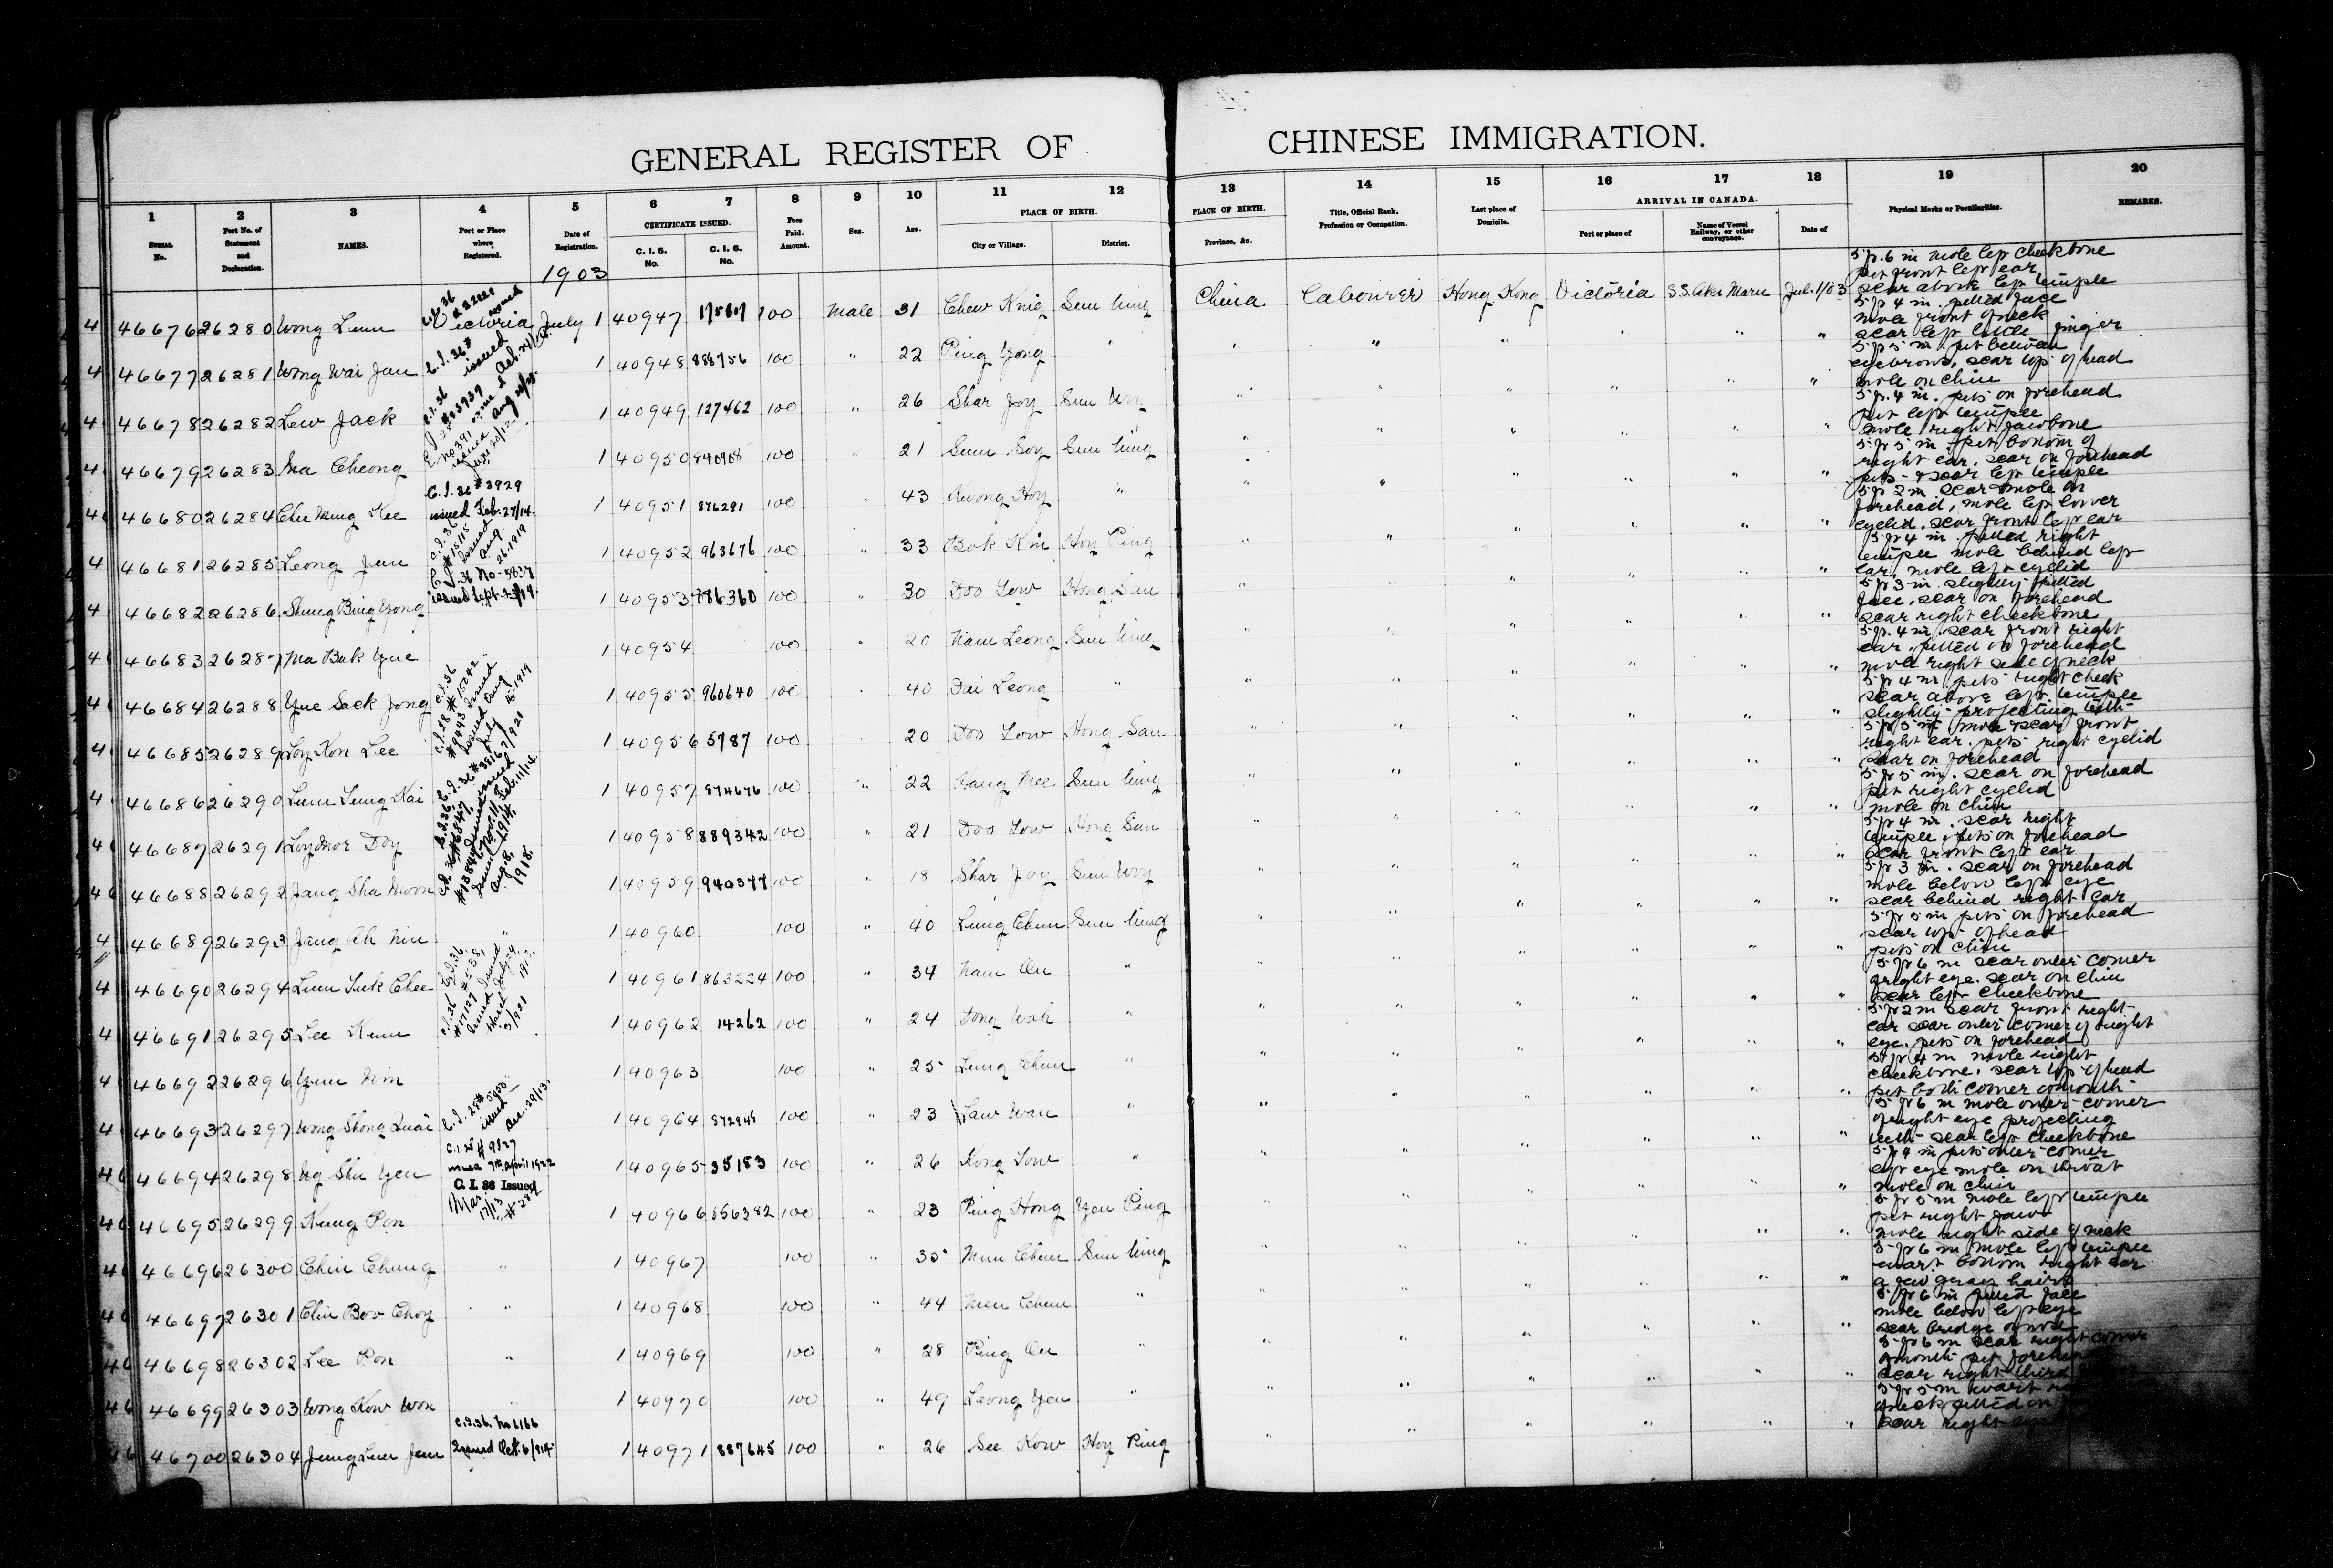 GENERAL REGISTER OF CHINESE IMMIGRATION.
1 2 3 4 5 6 7 8 9 10 11 12 13 14 15 16 17 18 19 20
CERTIFICATE ISSUED. PLACE OF BIRTH. PLACE OF BIRTH. ARRIVAL IN CANADA.
SERIAL No. Port No. of Statement and Declaration. NAMES. Port or Place where Registered. Date of Registration. C. I. 5. No. C. I. 6. No. Fees Paid. Amount. Sex. Age. City or Village. District. Province, &c. Title, Official Rank, Profession or Occupation. Last place of Domicile. Port or place of Name of Vessel Railway, or other conveyance. Date of Physical Marks or Peculiarities. REMARKS.
1903
46676 26280 Wong Lum Victoria July 1 40947 100 Male 31 Chew King Sun Ning China Labourer Hong Kong Victoria S.S. Aki Maru Jul. 1/03 5 ft. 6 in mole left cheekbone pit front left ear scar above left temple
46677 26281 Wong Wai Jan 1 40948 888756 100 " 22 Ping Yong " " " " " " " 5 ft 4 in. pitted face mole front of neck scar left little finger
46678 26282 Lew Jack 1 40949 127462 100 " 26 Shar Joy Sun Woy " " " " " " 5 ft 5 in. pit between eyebrows, scar top of head mole on chin
46679 26283 Ma Cheong 1 40950 100 " 21 Suun Soy Sun Ning " " " " " " 5 ft. 4 in. pits on forehead pit left temple mole right jawbone
46680 26284 Chu Ming Kee C.I. 36 #3929 issued Feb. 27/14. 1 40951 876291 100 " 43 Kwong Hoy " " " " " " " 5 ft 5 in pit bottom of right ear. scar on forehead pits & scar left temple
46681 26285 Leong Jan C.I. 36 #15115 issued Aug 26 1919 1 40952 963676 100 " 33 Bok Kin Hoy Ping " " " " " " 5 ft 2 in. scar & mole on forehead, mole left lower eyelid. scar front left ear
46682 26286 Shung Bing Yong C.I. 36 No. 5837 issued Sept. 23/14. 1 40953 886360 100 " 30 Doo Low Hong San " " " " " " 5 ft 4 in. pitted right temple mole behind left ear, mole left eyelid
46683 26287 Ma Bak Yue 1 40954 100 " 20 Nam Leong Sun Ning " " " " " " 5 ft 3 in. slightly pitted face, scar on forehead scar right cheekbone
46684 26288 Yue Sack Jong 1 40955 960640 100 " 40 Dai Leong " " " " " " " 5 ft. 4 in scar front right ear. pitted on forehead mole right side of neck
46685 26289 Loy Kon Lee 1 40956 5787 100 " 20 Doo Low Hong San " " " " " " 5 ft 4 in. pits right cheek scar above left temple slightly projecting teeth
46686 26290 Lum Lung Kai 1 40957 874676 100 " 22 Sun Ning " " " " " " 5 ft 5 in mole & scar front right ear. pits right eyelid scar on forehead
46687 26291 Loy Mor Doy 1 40958 889342 100 " 21 Doo Low Hong San " " " " " " 5 ft 5 in. scar on forehead pit right eyelid mole on chin
46688 26292 Jang Sha Moon 1 40959 940377 100 " 18 Shar Joy Sun Woy " " " " " " 5 ft 4 in. scar right temple, pits on forehead scar front left ear
46689 26293 Jang Ah Nin " 1 40960 100 " 40 Lung Chun Sun Ning " " " " " " 5 ft 3 in. scar on forehead mole below left eye scar behind right ear
46690 26294 Lum Suk Chee 1 40961 863224 100 " 34 Nam On " " " " " " " 5 ft 5 in pits on forehead scar top of head pits on chin
46691 26295 Lee Kum 1 40962 14262 100 " 24 Dong Wah " " " " " " " 5 ft 6 in scar outer corner of right eye. scar on chin scar left cheekbone
46692 26296 Yuen Nim 1 40963 100 " 25 Lung Chun " " " " " " " 5 ft 2 in scar front right ear scar outer corner of right eye. pits on forehead
46693 26297 Wong Shong Quai 1 40964 872945 100 " 23 " " " " " " " 5 ft 4 in mole right cheekbone, scar top of head pit both corner of mouth
46694 26298 Ng Shu Yen C.I. 28 #9827 issued 7th April 1922 1 40965 35183 100 " 26 Kong Low " " " " " " " 5 ft 6 in mole outer corner of right eye projecting teeth scar left cheekbone
46695 26299 Kung Pon C. I. 36 Issued Mar. 17/13 1 40966 856382 100 " 23 Ping Hong Yen Ping " " " " " " 5 ft 4 in pits outer corner left eye mole on throat mole on chin
46696 26300 Chin Chung " 1 40967 100 " 35 Mun Chun Sun Ning " " " " " " 5 ft 5 in mole left temple pit right jaw mole right side of neck
46697 26301 Chin Boo Choy " 1 40968 100 " 44 Men Chun " " " " " " " 5 ft 6 in mole left temple wart bottom right ear a few gray hairs
46698 26302 Lee Pon " 1 40969 100 " 28 Ping On " " " " " " " 5 ft 6 in pitted face mole below left eye scar bridge of nose
46699 26303 Wong Kow Won " 1 40970 100 " 49 Leong Yen " " " " " " " 5 ft 6 in scar right corner of mouth pit forehead scar right third
46700 26304 Jung Lun Jan C.I. 36. No 6166 Issued Oct. 6/914 1 40971 887645 100 " 26 See Kow Hoy Ping " " " " " " 5 ft 5 in wart neck pitted on scar right eye